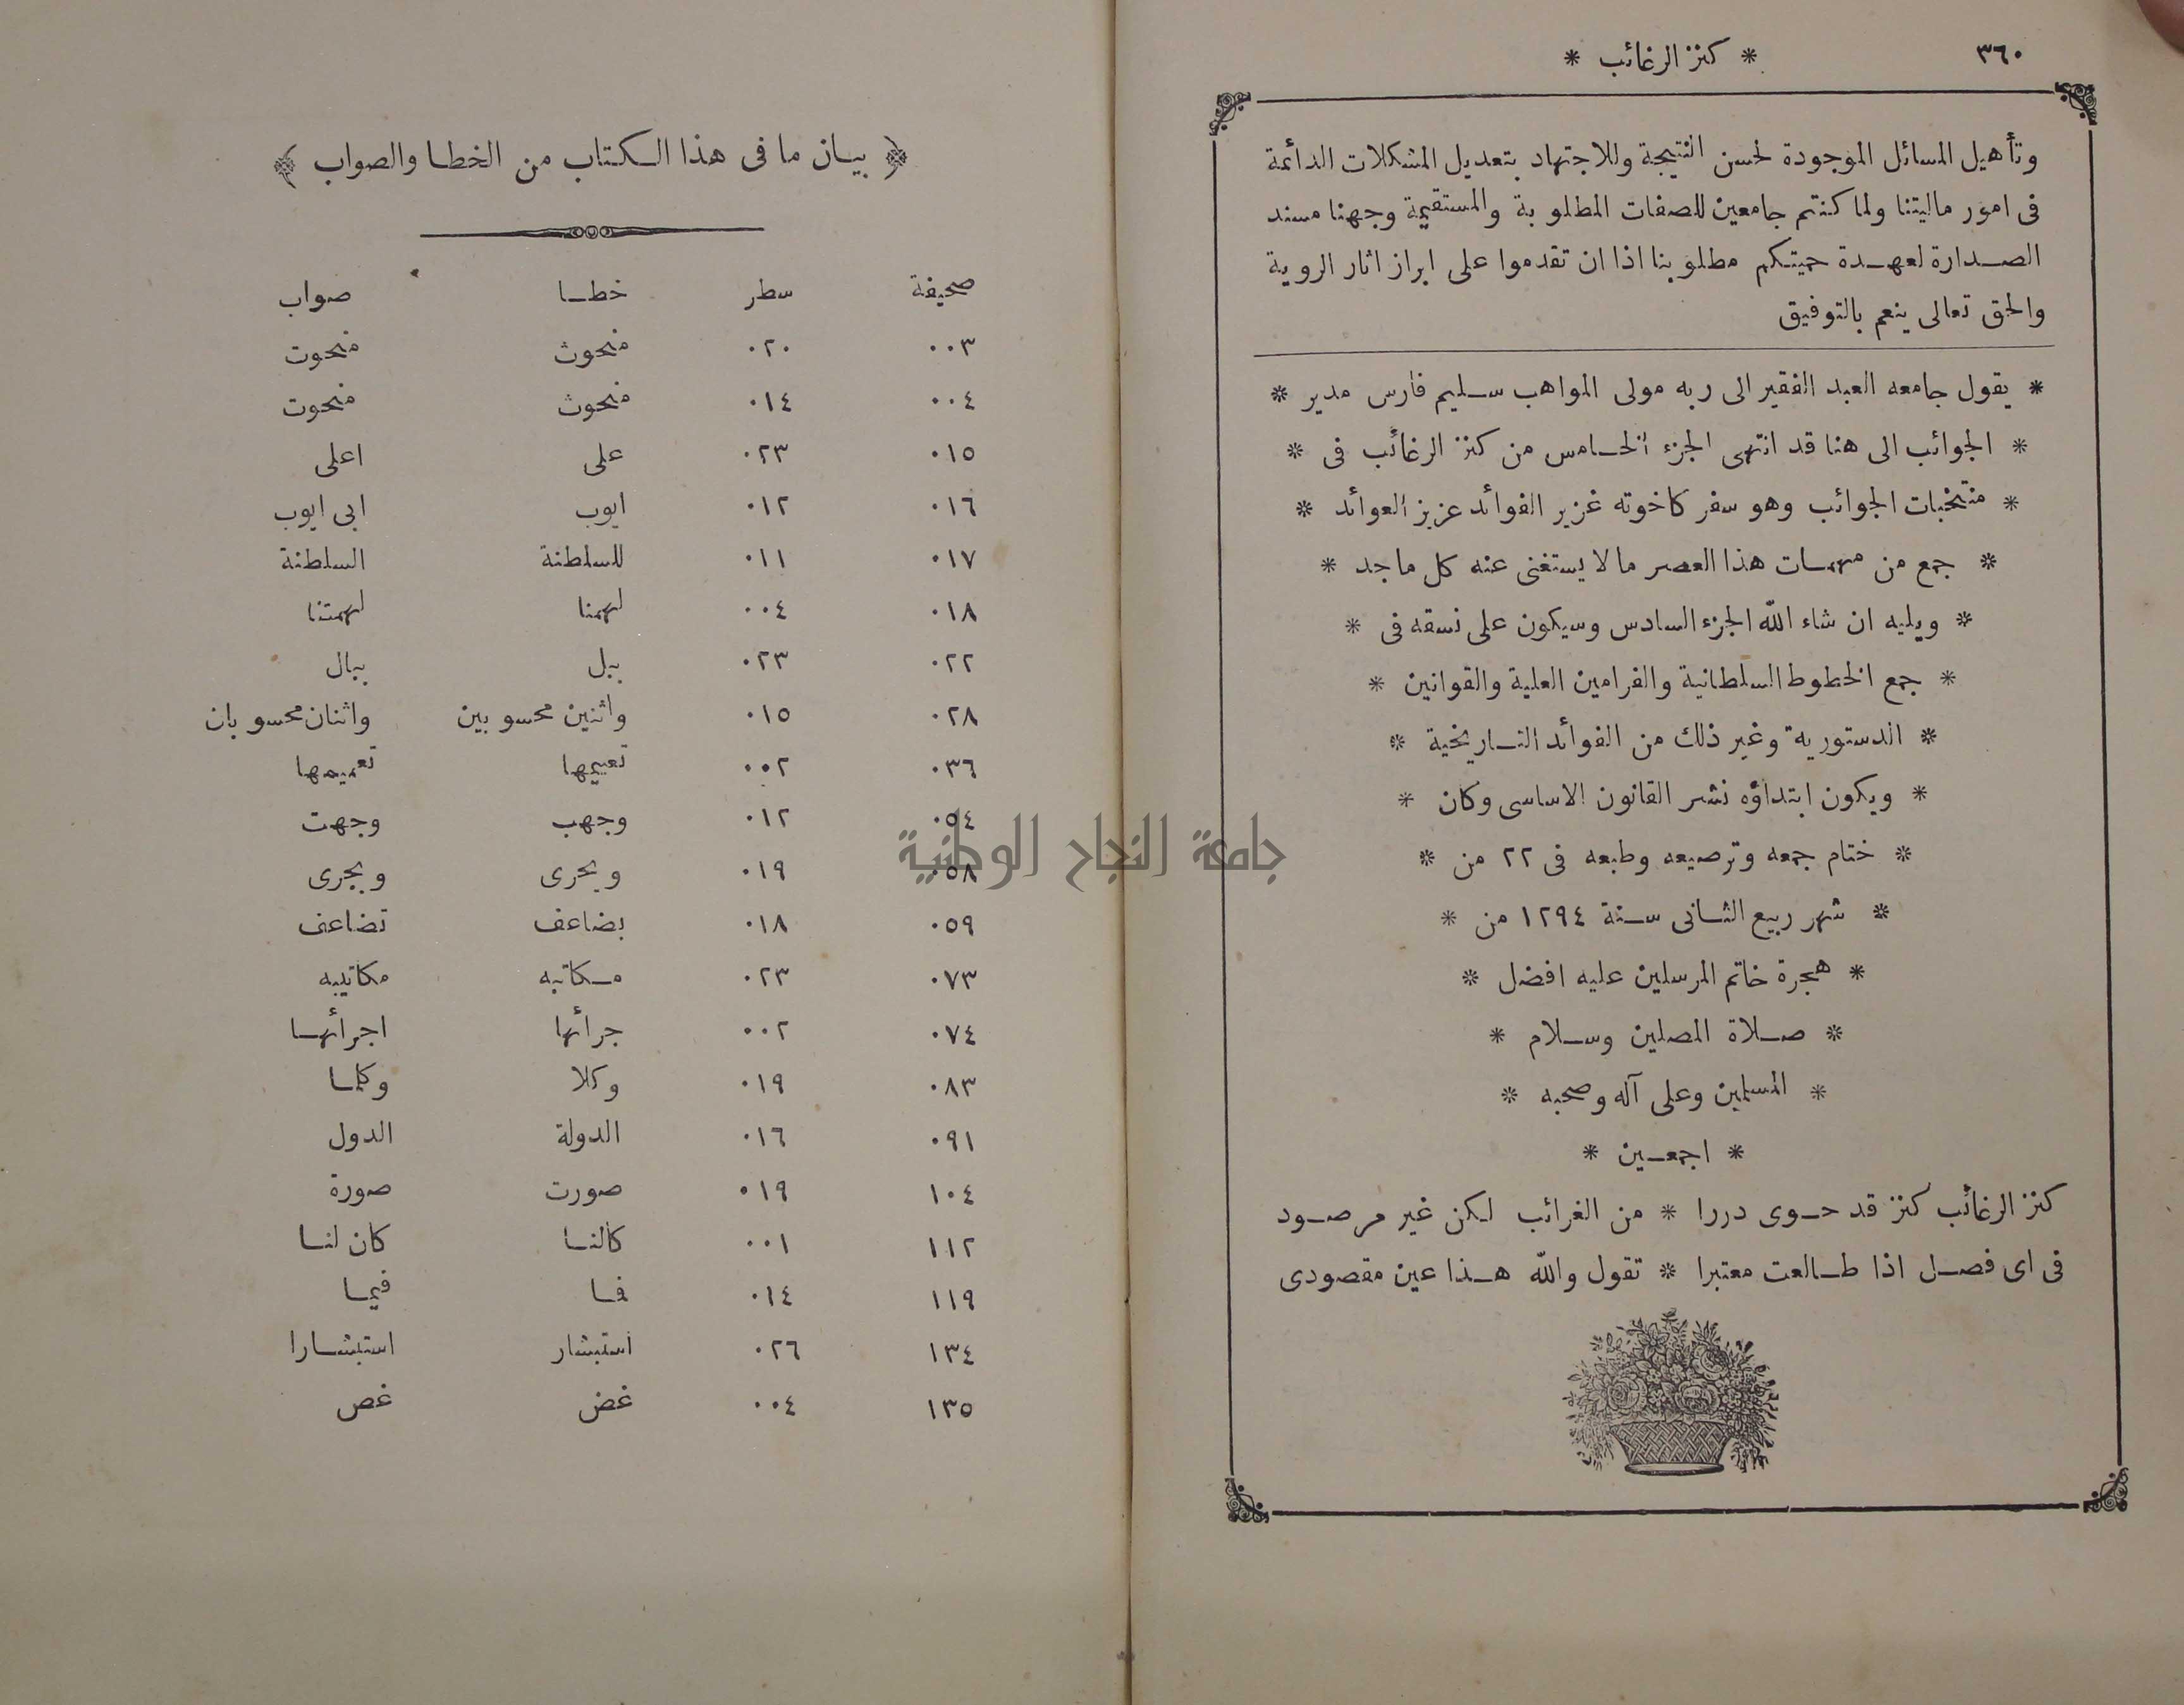 ٣٦٠
* كنز الرغائب *
وتأهيل المسائل الموجودة لحسن النتيجة وللاجتهاد بتعديل المشكلات الدائمة
فى امور ماليتنا ولما كنتم جامعين للصفات المطلوبة والمستقيمة وجهنا مسند
الصدارة لعهدة حميتكم مطلوبنا اذا ان تقدموا على ابراز اثار الروية
والحق تعالى ينعم بالتوفيق
* يقول جامعه العبد الفقير الى ربه مولى المواهب سليم فارس مدير *
* الجوائب الى هنا قد انتهى الجزء الخامس من كنز الرغائب فى *
* منتخبات الجوائب وهو سفر كاخوته غزير الفوائد عزيز العوائد *
* جمع من مهمات هذا العصر ما لا يستغنى عنه كل ماجد *
* ويليه ان شاء الله الجزء السادس وسيكون على نسقه فى *
* جمع الخطوط السلطانية والفرامين العلية والقوانين *
* الدستورية وغير ذلك من الفوائد التاريخية *
* ويكون ابتداؤه نشر القانون الاساسى وكان *
* ختام جمعه وترصيعه وطبعه فى ٢٢ من *
* شهر ربيع الثانى سنة ١٢٩٤ من *
* هجرة خاتم المرسلين عليه افضل *
* صلاة المصلين وسلام *
* المسلمين وعلى آله وصحبه *
* اجمعين *
كنز الرغائب كنز قد حوى دررا * من الغرائب لكن غير مرصود
فى اى فصل اذا طالعت معتبرا * تقول والله هذا عين مقصودى
﴿ بيان ما فى هذا الكتاب من الخطا والصواب ﴾
صحيفة سطر خطا صواب
٠٠٣ ٠٢٠ منحوث منحوت
٠٠٤ ٠١٤ منحوث منحوت
٠١٥ ٠٢٣ على اعلى
٠١٦ ٠١٢ ايوب ابى ايوب
٠١٧ ٠١١ للسلطنة السلطنة
٠١٨ ٠٠٤ لهمنا لهمتنا
٠٢٢ ٠٢٣ ببل ببال
٠٢٨ ٠١٥ واثنين محسوبين واثنان محسوبان
٠٣٦ ٠٠٢ تعييمها تعميمها
٠٥٤ ٠١٢ وجهب وجهت
٠٥٨ ٠١٩ ويحرى ويجرى
٠٥٩ ٠١٨ بضاعف تضاعف
٠٧٣ ٠٢٣ مكاتبه مكاتيبه
٠٧٤ ٠٠٢ جرائها اجرائها
٠٨٣ ٠١٩ وكلا وكلما
٠٩١ ٠١٦ الدولة الدول
١٠٤ ٠١٩ صورت صورة
١١٢ ٠٠١ كالنا كان لنا
١١٩ ٠١٤ فا فيما
١٣٤ ٠٢٦ استبشار استبشارا
١٣٥ ٠٠٤ غض غص
جامعة النجاح الوطنية